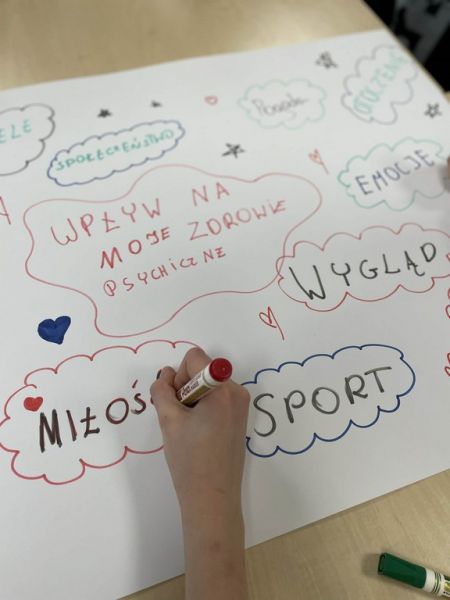 ELE
SPOŁECZEŃSTWO
Pogoda
OTOCZENIE
EMOCJE
WPŁYW NA
MOJE ZDROWIE
PSYCHICZNE
WYGLĄD
MIŁOŚ
SPORT